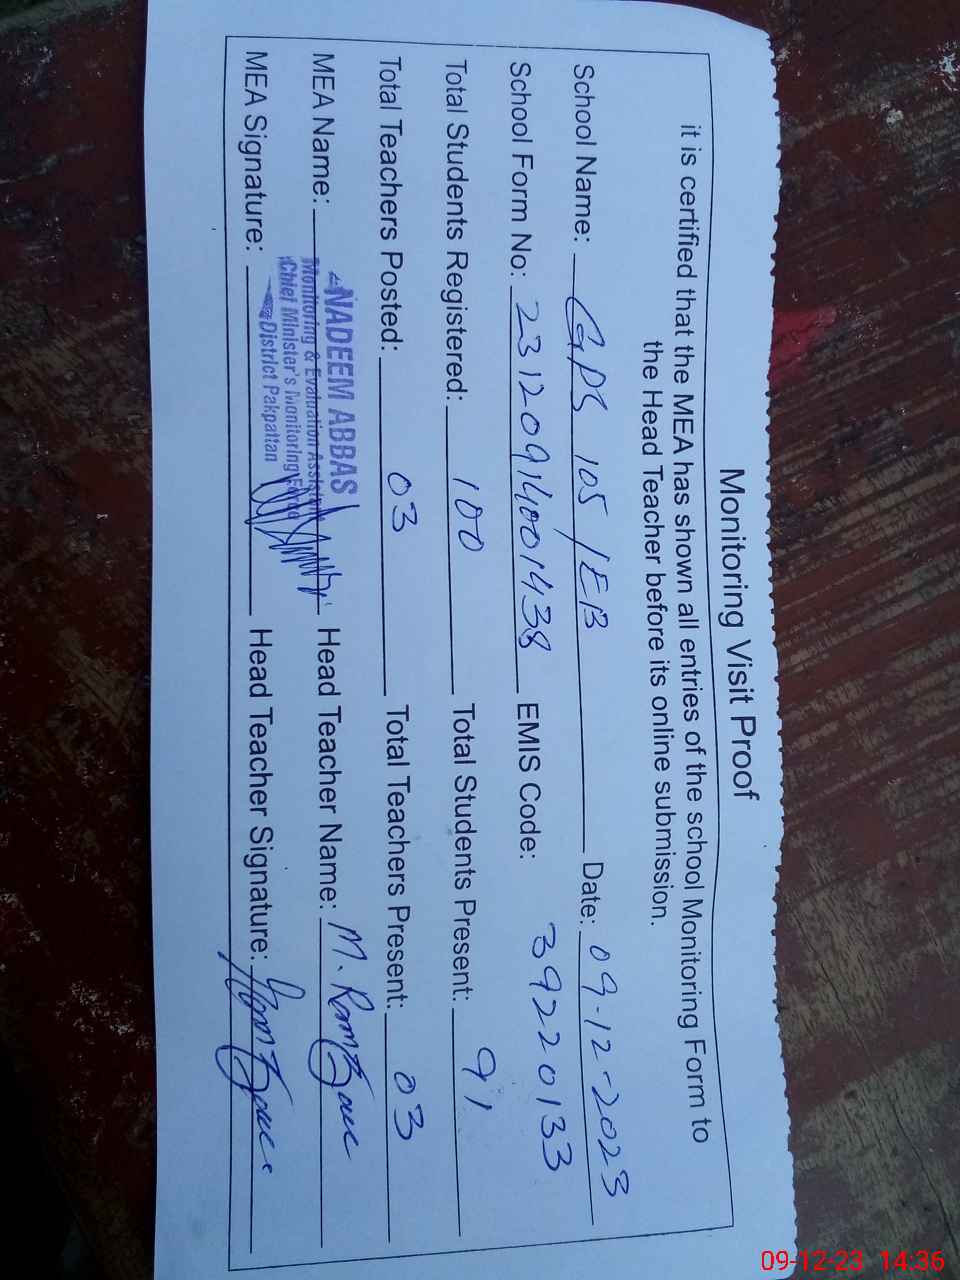 Monitoring Visit Proof
it is certified that the MEA has shown all entries of the school Monitoring Form to
the Head Teacher before its online submission.
School Name: GPS 105/EB Date: 09-12-2023
School Form No: 23120914001438 EMIS Code: 39220133
Total Students Registered: 100 Total Students Present: 91
Total Teachers Posted: 03 Total Teachers Present: 03
MEA Name: NADEEM ABBAS Head Teacher Name: M.
Monitoring & Evaluation Assistant
Chief Minister's Monitoring Force
District Pakpattan
MEA Signature: Head Teacher Signature:
09-12-23 14:36